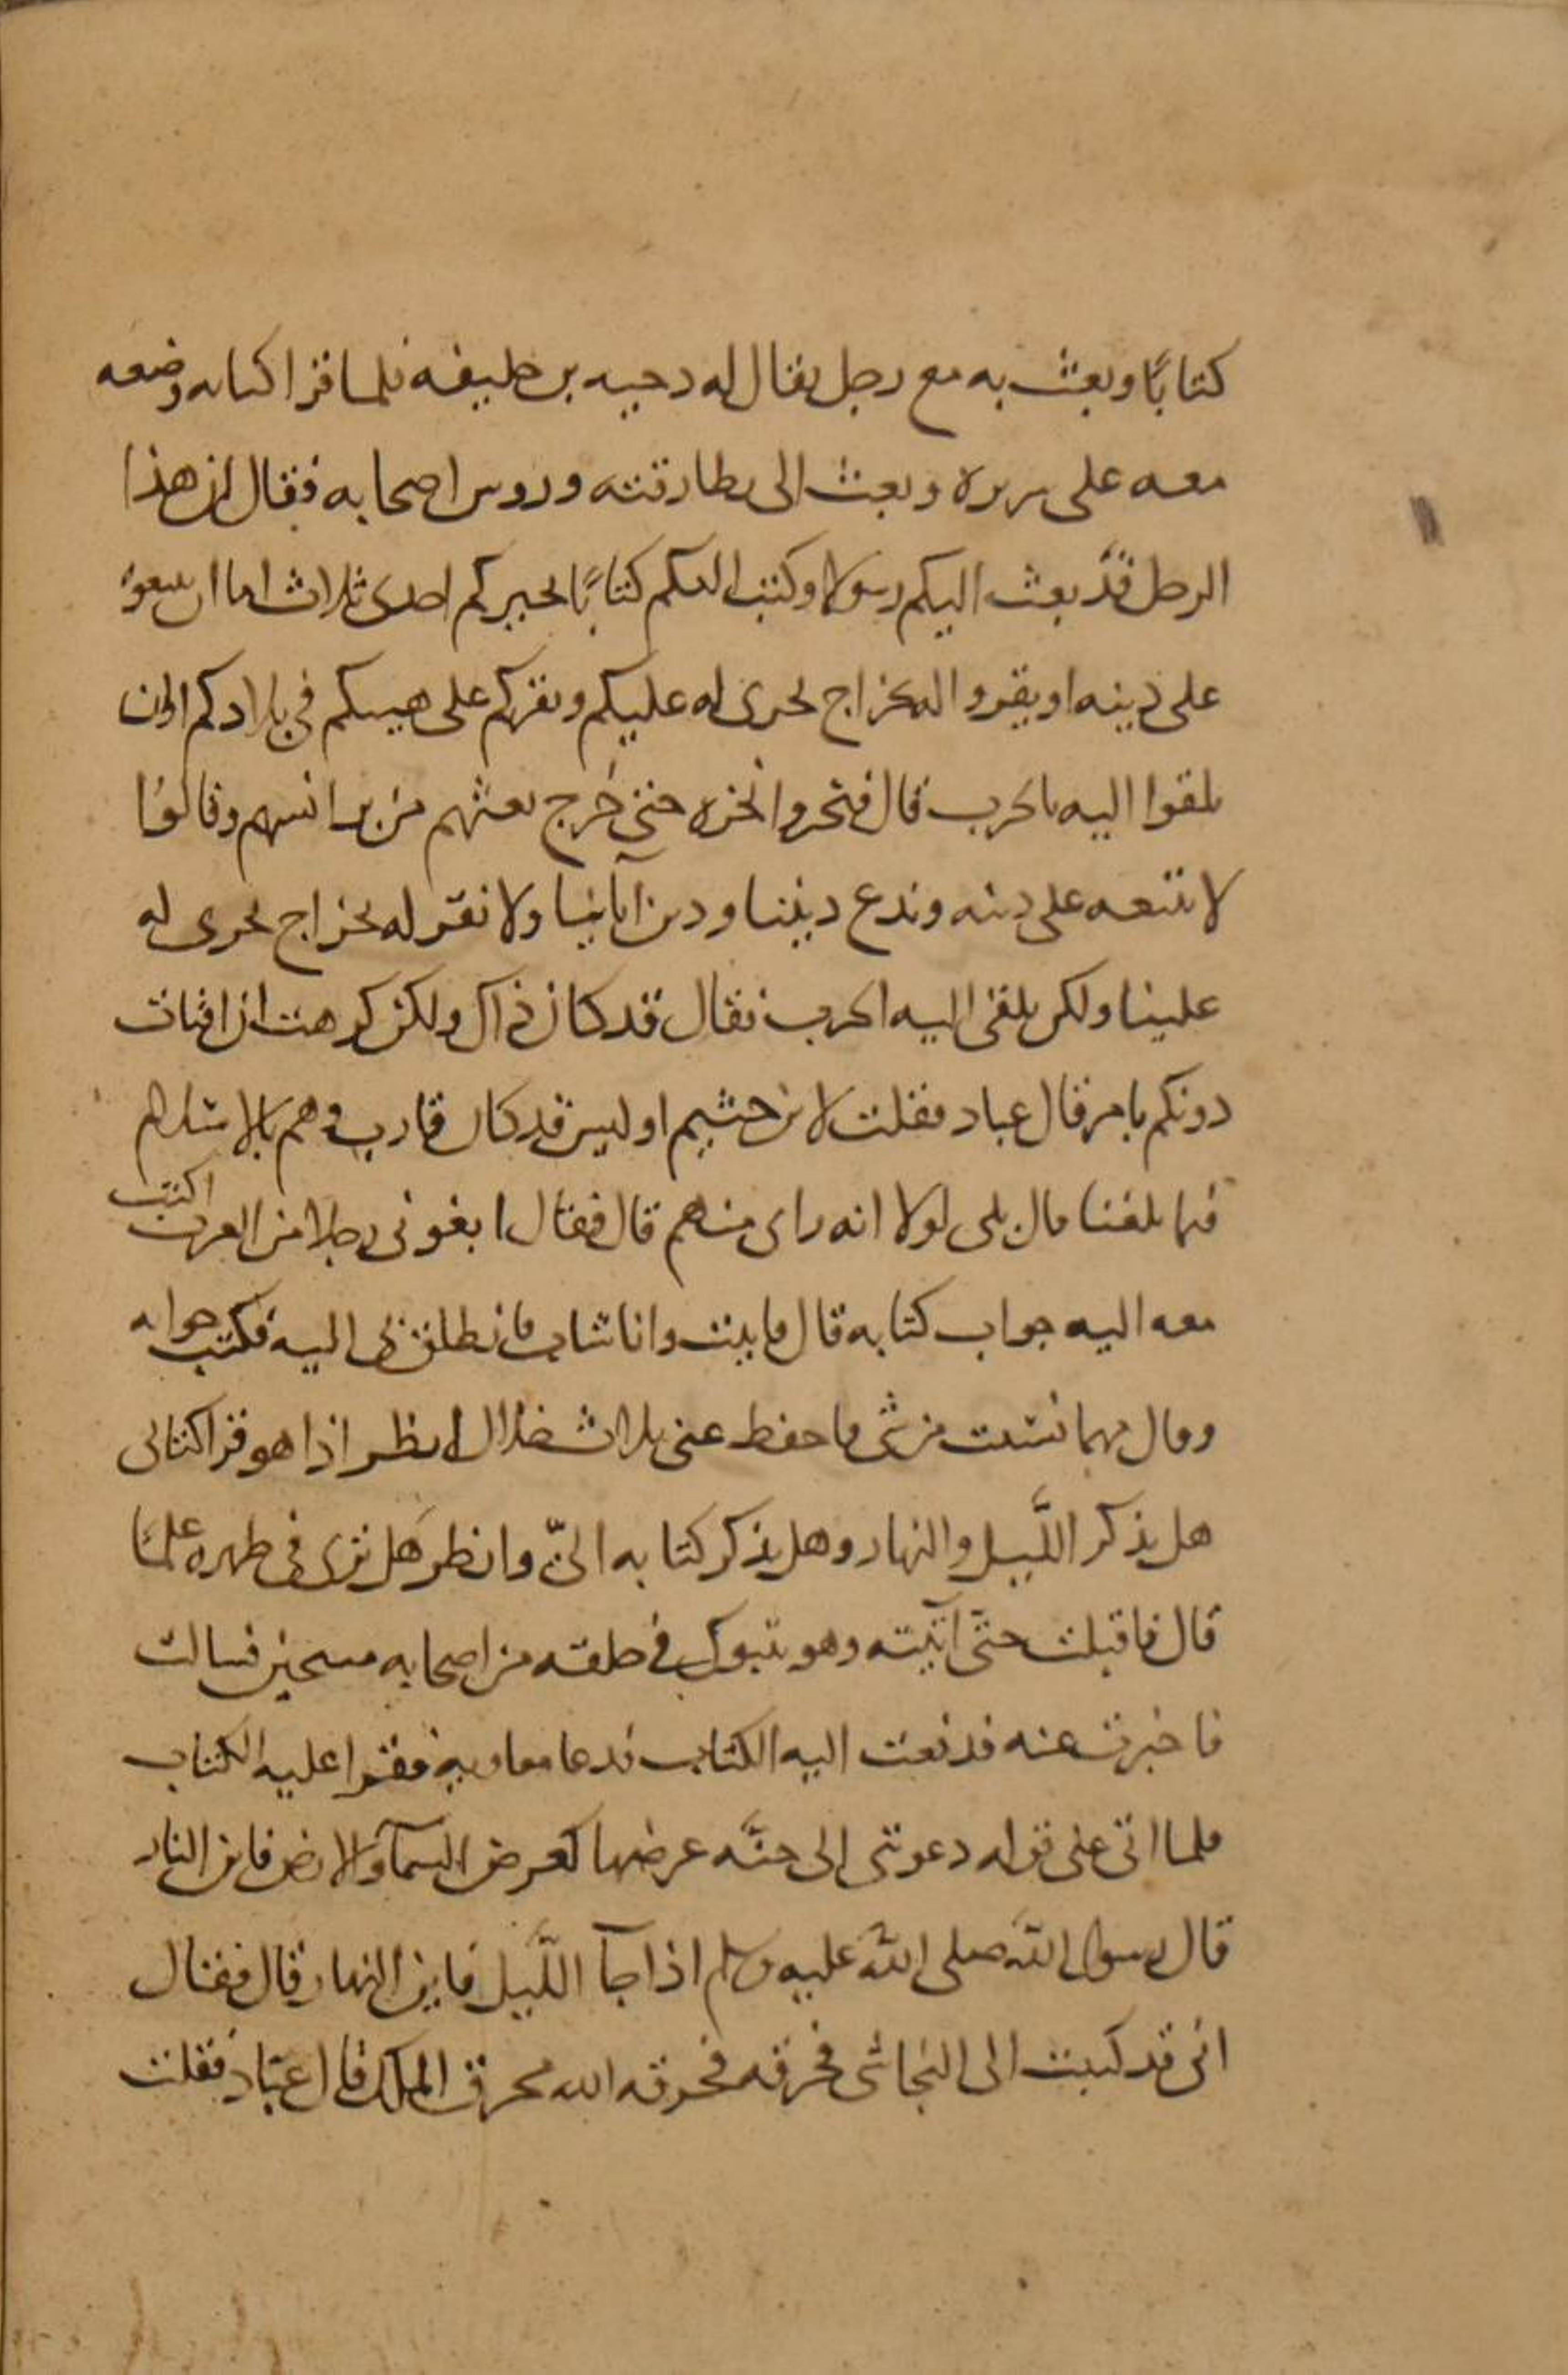 كتابًا وبعث به مع رجل يقال له دحيه بن خليفه فلما قرا كتابه وضعه
معه على سريره وبعث الى بطارقته وروس اصحابه فقال ان هذا
الرجل قد بعث اليكم رسولا وكتب اليكم كتابًا يخيركم احدى ثلاث اما ان تتبعوا
على دينه او يقروا له بخراج يجرى له عليكم ويقركم على هيئتكم في بلادكم او ان
يلقوا اليه بالحرب قال فنخروا نخره حتى خرج بعضهم من برانسهم وقالوا
لا نتبعه على دينه وندع ديننا ودين آبائنا ولا نقر له بخراج يجرى له
علينا ولكن يلقى اليه الحرب فقال قد كان ذاك ولكن كرهت ان افتات
دونكم بامر قال عباد فقلت لابن خثيم او ليس قد كان قارب وهم بالاسلام
فيما بلغنا قال بلى لولا انه راى منهم قال فقال ابغونى رجلا من العرب اكتب
معه اليه جواب كتابه قال فاتيت وانا شاب فانطلق بى اليه فكتب جوابه
وقال مهما نسيت من شى فاحفظ عنى ثلاث خلال انظر اذا هو قرا كتابى
هل يذكر اللَّيل والنهار وهل يذكر كتابه الىّ وانظر هل ترى في ظهره علمًا
قال فاقبلت حتَّى آتيته وهو بتبوك في حلقه من اصحابه فسالت
فاخبرت عنه فدفعت اليه الكتاب فدعا معاويه فقرا عليه الكتاب
فلما اتى على قوله دعوتنى الى جنَّه عرضها كعرض السمآ والارض فاين النار
قال رسول الله صلى الله عليه وسلم اذا جآ اللَّيل فاين النهار قال فقال
انى قد كتبت الى النجاشى فخرقه فخرقه الله مخرق الملك قال عبّاد فقلت